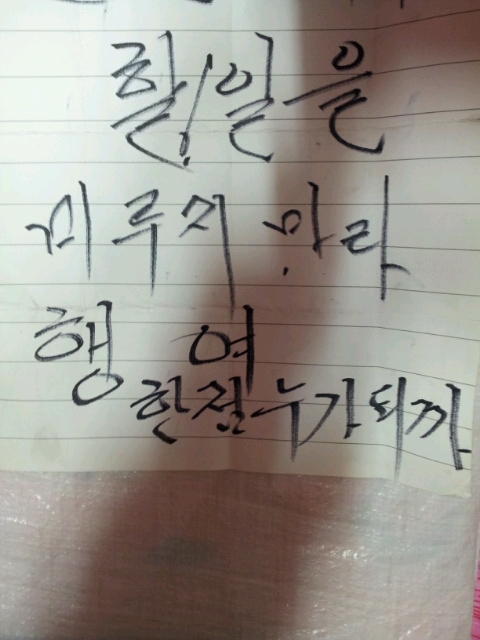 할!일을
미루지 마라
행여
한점누가되까